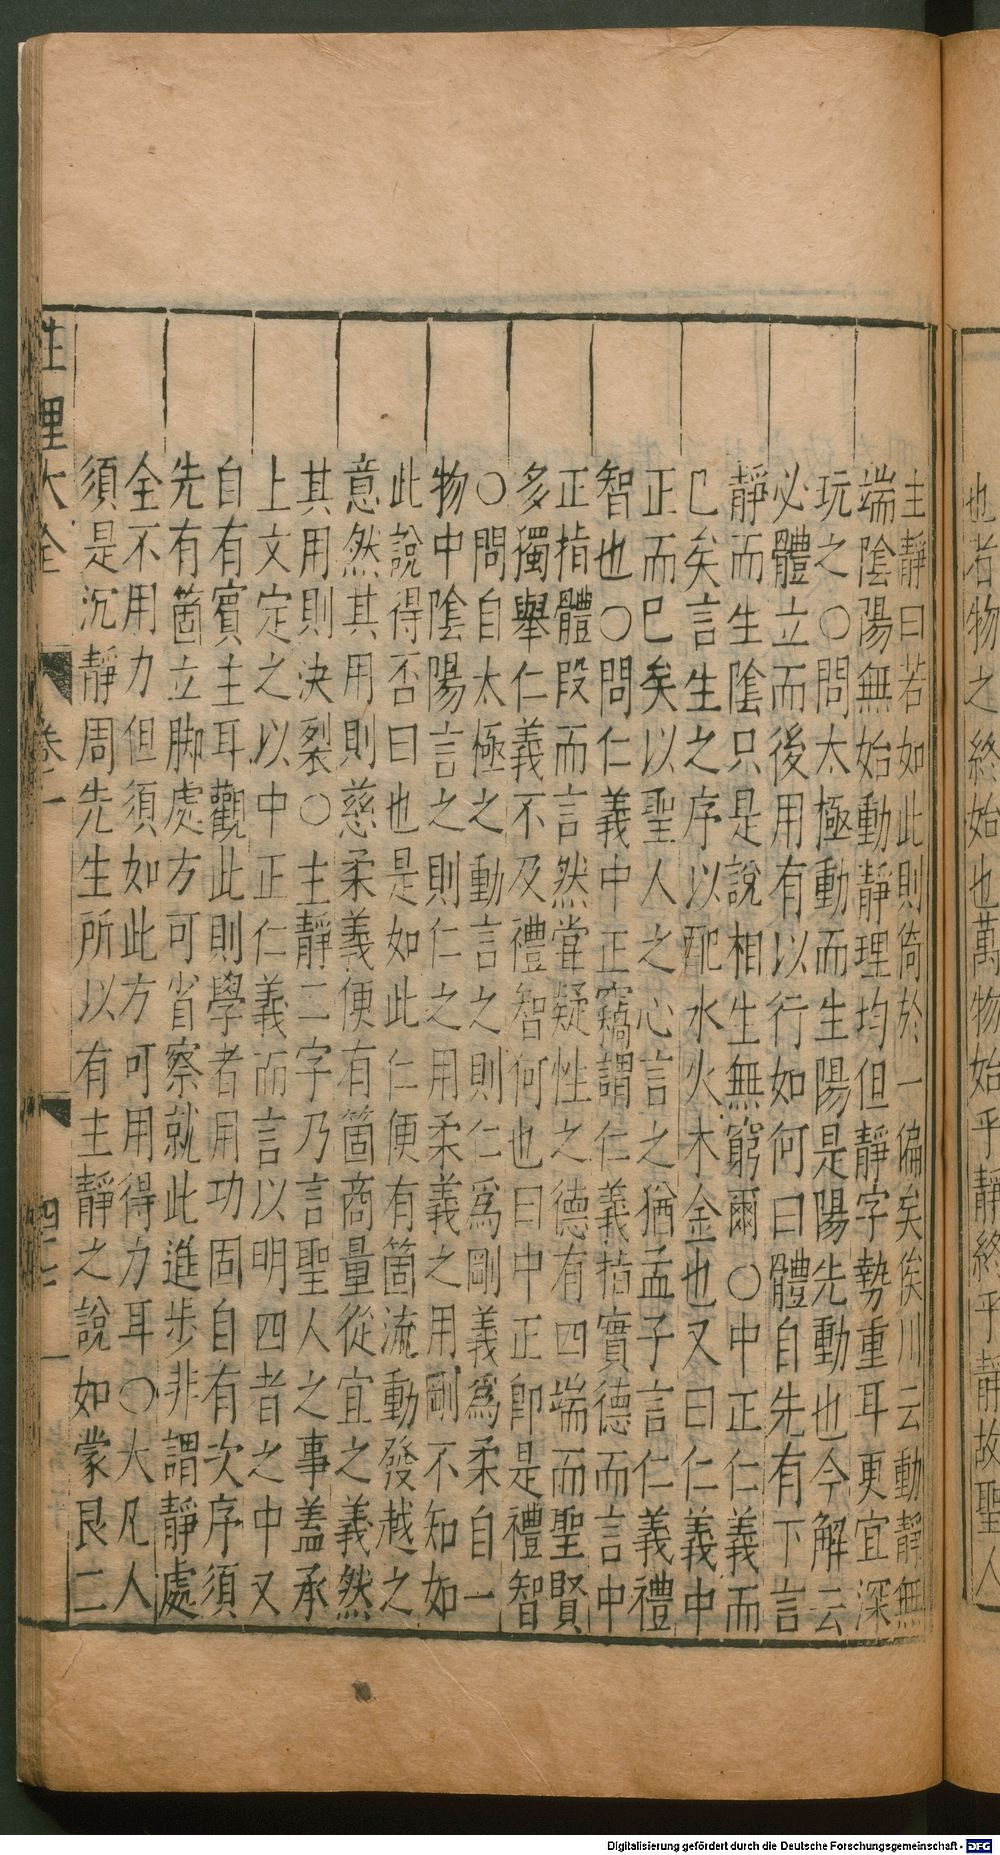 也若物之終始也萬物始乎靜終乎靜故聖人
主靜曰若如此則倚於一偏矣俟川云動靜無
端陰陽無始動靜理均但靜字勢重耳更宜深
玩之〇問太極動而生陽是陽先動也今解云
必體立而後用有以行如何曰體自先有下言
靜而生陰只是說相生無窮爾〇中正仁義而
已矣言生之序以配水火木金也又曰仁義中
正而巳矣以聖人之心言之猶孟子言仁義禮
智也〇問仁義中正竊謂仁義指實德而言中
正指體段而言然嘗疑性之德有四端而聖賢
多獨舉仁義不及禮智何也曰中正卽是禮智
〇問自太極之動言之則仁爲剛義爲柔自一
物中陰陽言之則仁之用柔義之用剛不知如
此說得否曰也是如此仁便有箇流動發越之
意然其用則慈柔義便有箇商量從宜之義然
其用則決裂〇主靜二字乃言聖人之事蓋承
上文定之以中正仁義而言以明四者之中又
自有賓主耳觀此則學者用功固自有次序須
先有箇立脚處方可省察就此進步非謂靜處
全不用力但須如此方可用得力耳〇大凡人
須是沉靜周先生所以有主靜之說如蒙艮二
性理大全 卷一 四十七
Digitalisierung gefördert durch die Deutsche Forschungsgemeinschaft - DFG